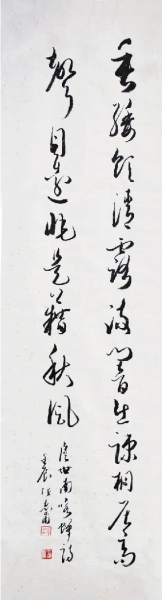 垂緌飲清露流響出疎桐居高
聲自遠非是藉秋風
虞世南咏蟬詩
壬辰